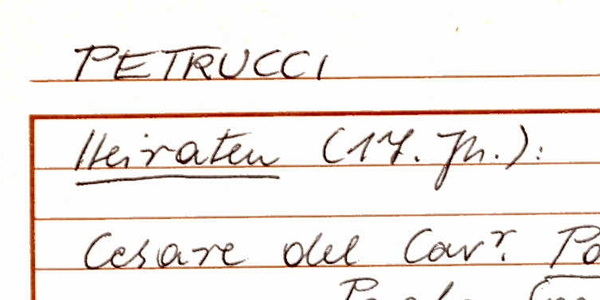 PETRUCCI
Heiraten (17. Jh.):
Cesare del Cavr.